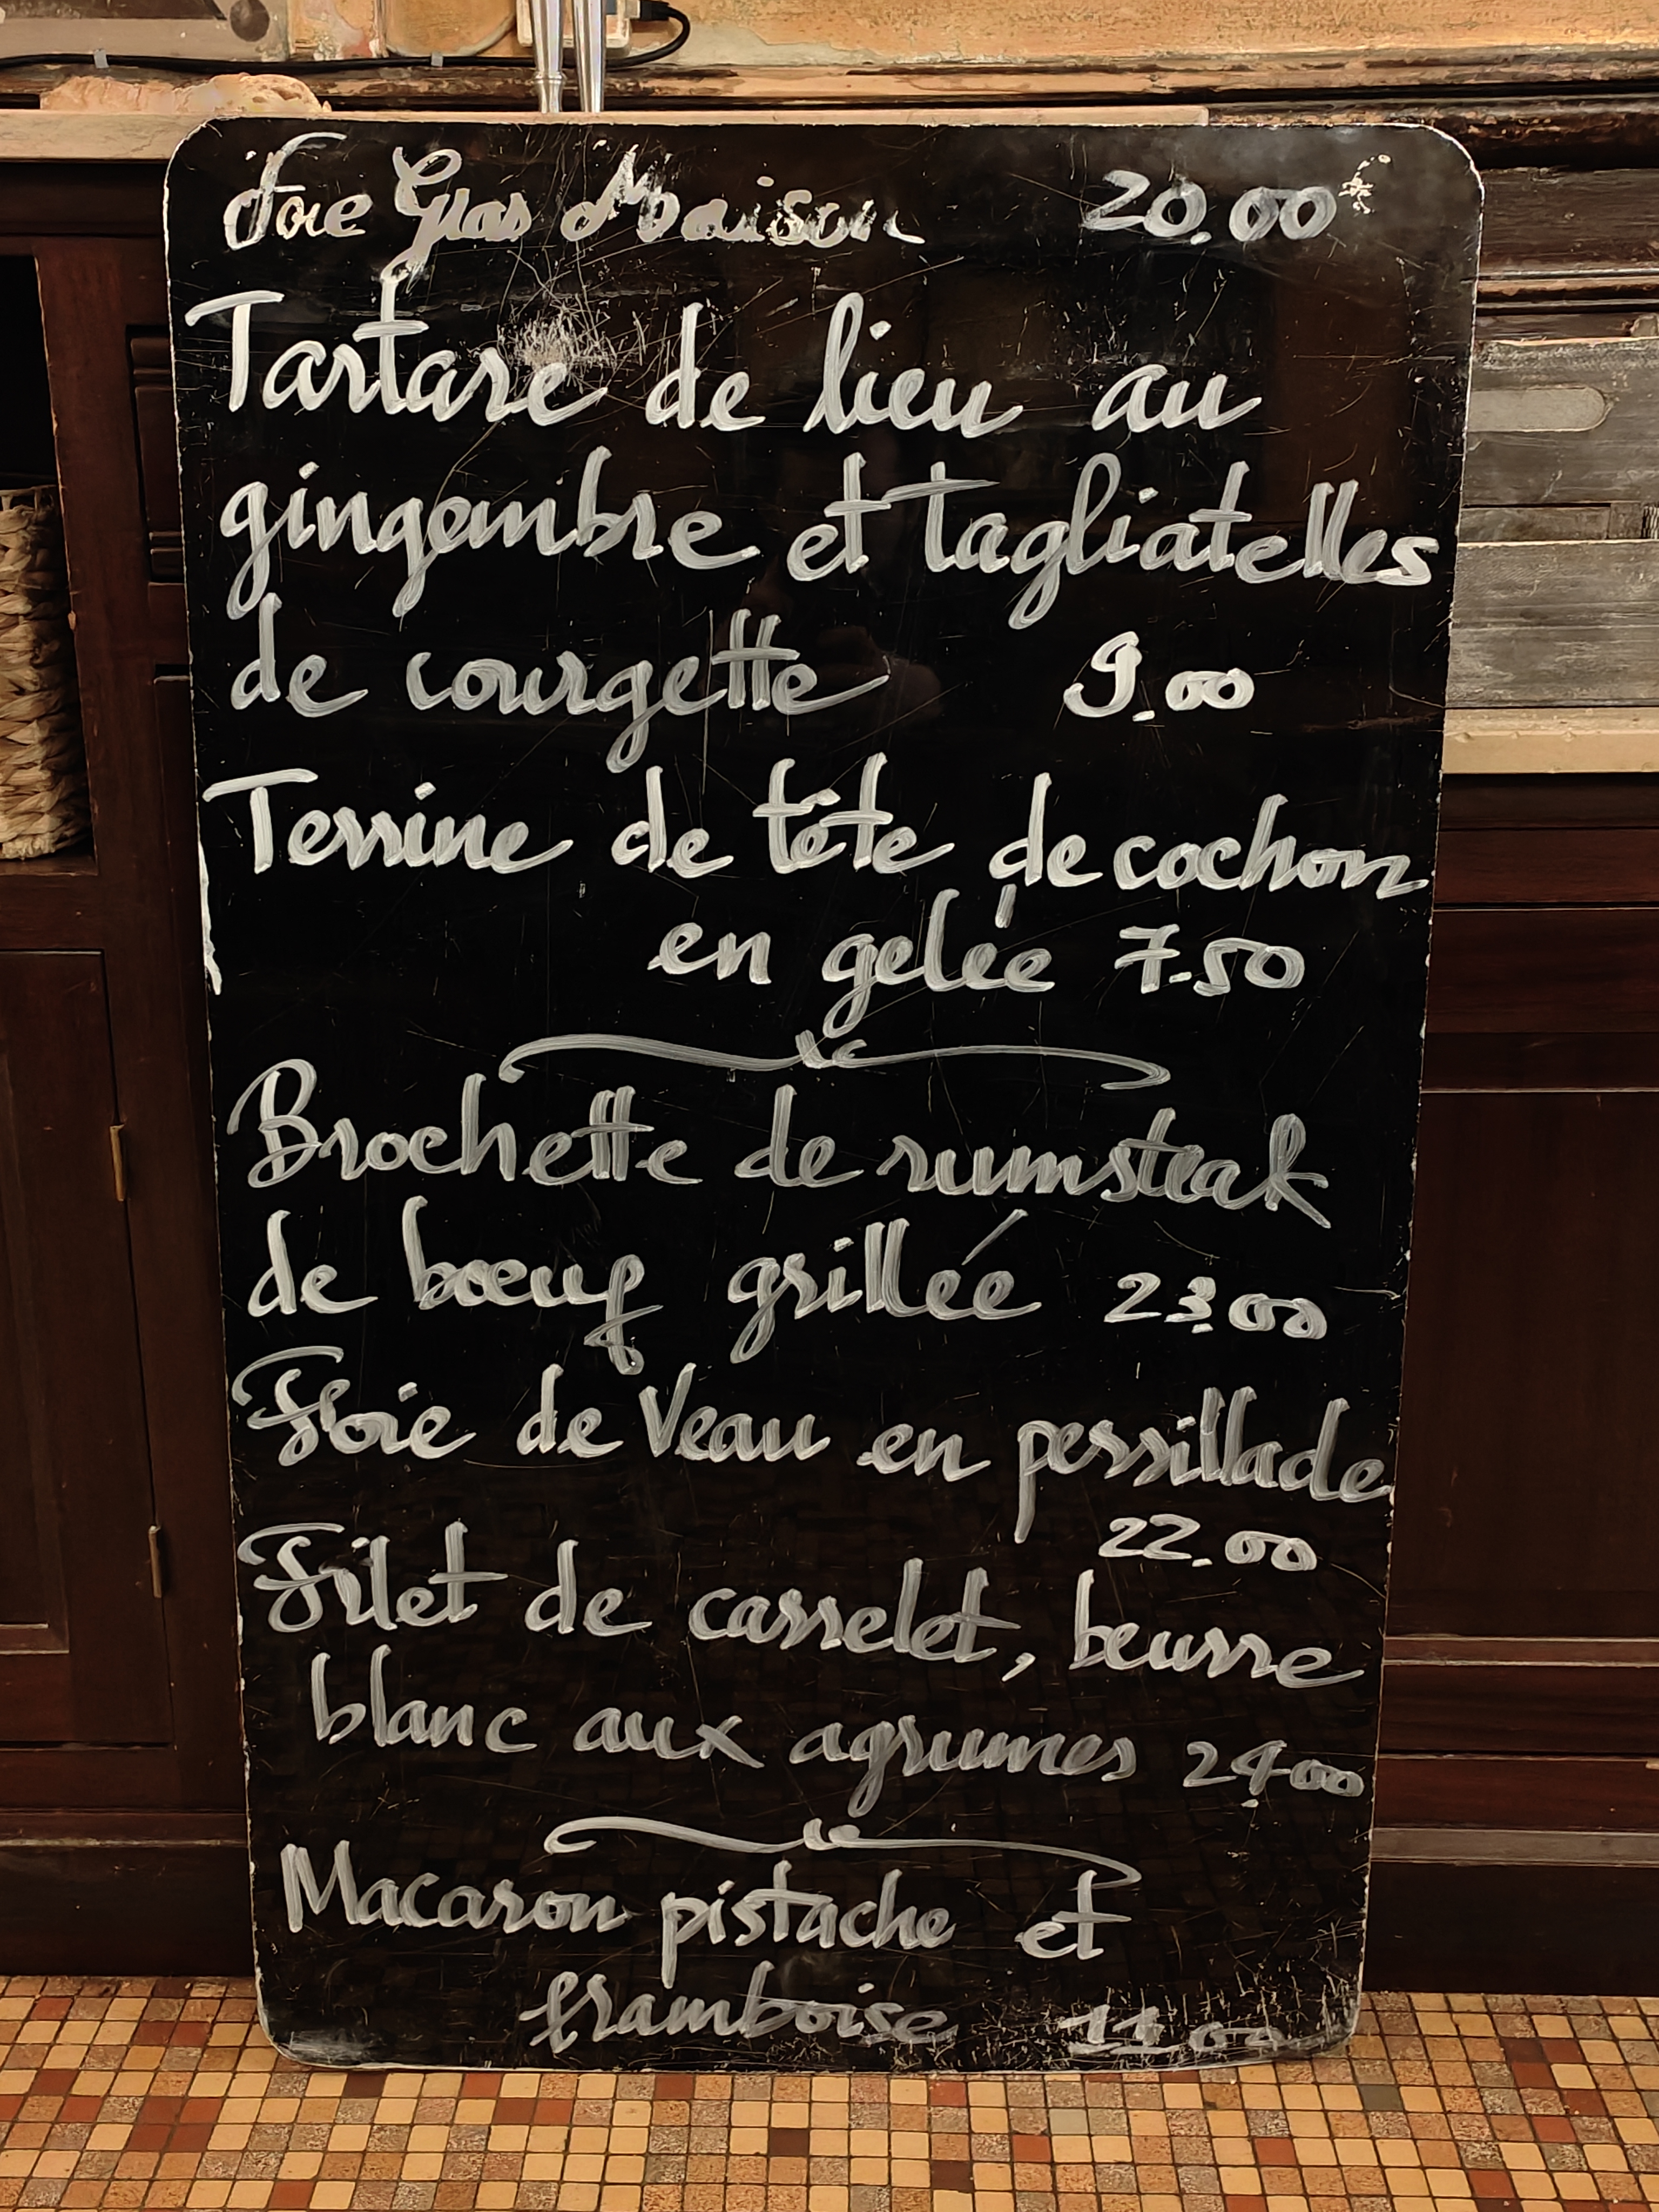 Foie Gras Maison 20.00
Tartare de lieu au
gingembre et tagliatelles
de courgette 9.00
Terrine de tête de cochon
en gelée 7.50
Brochette de rumsteak
de bœuf grillée 23.00
Foie de Veau en persillade
22.00
Filet de carrelet, beurre
blanc aux agrumes 24.00
Macaron pistache et
framboise 11.00